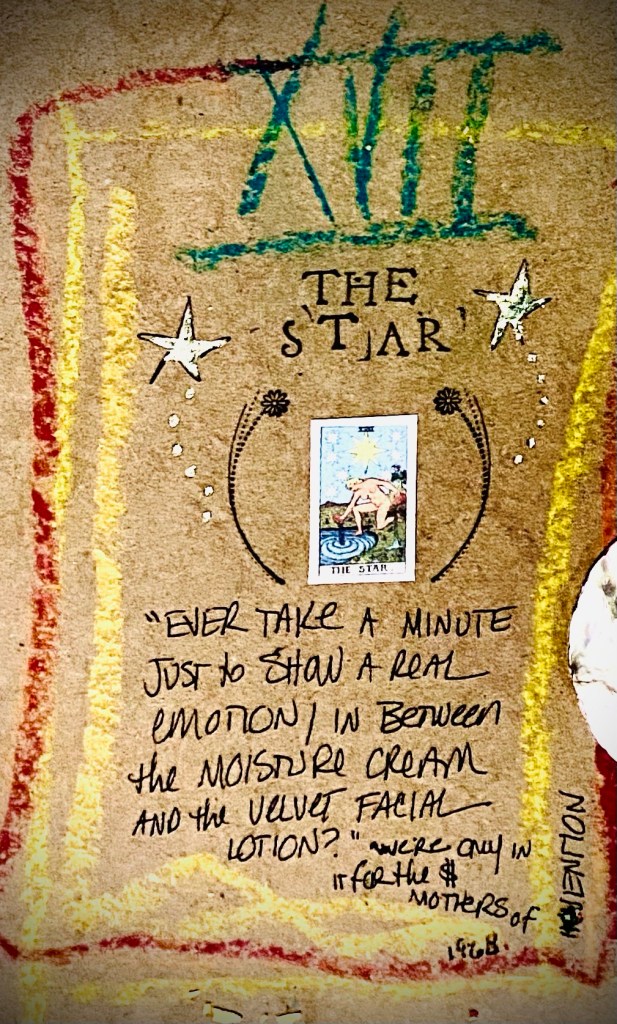 XVII
THE
S'TJAR'
XVII
THE STAR.
"EVER TAKE A MINUTE
JUST to SHOW A REAL
EMOTION/ IN BETWEEN
the MOISTURE CREAM
AND the VELVET FACIAL
LOTION?" ~WE'RE ONLY IN
IT FOR the $
MOTHERS of
INVENTION
1968.